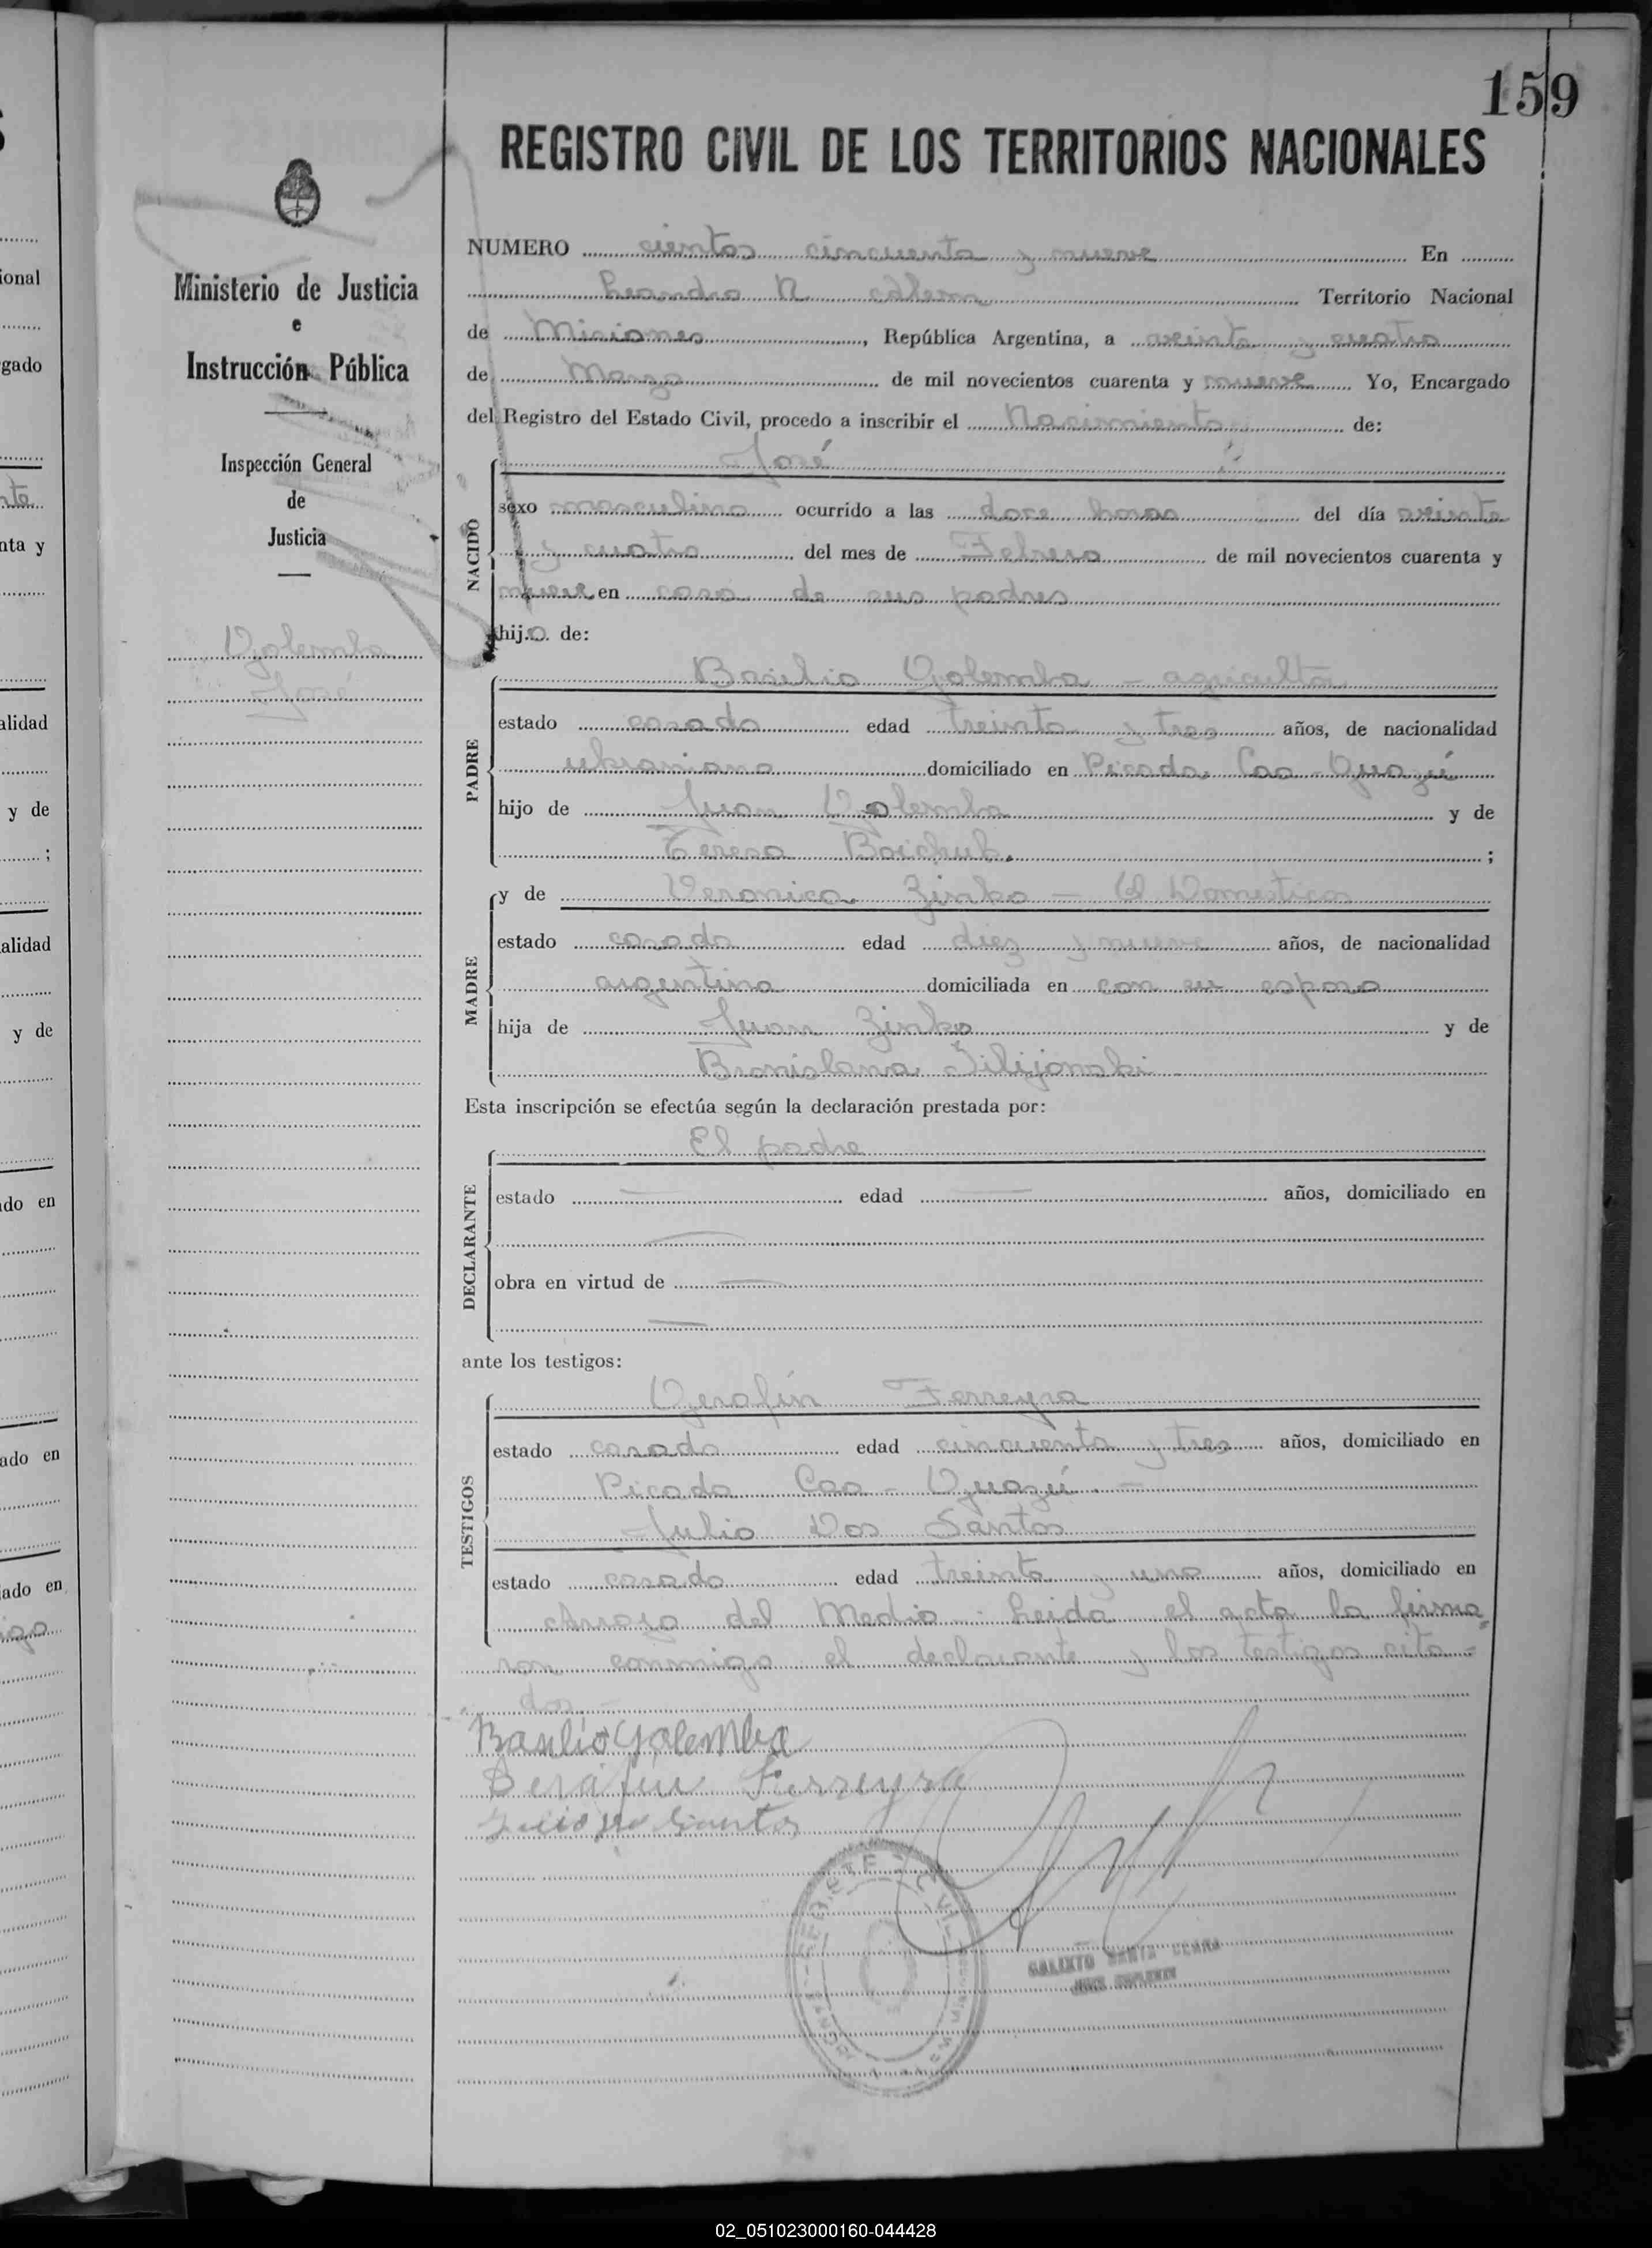 159
REGISTRO CIVIL DE LOS TERRITORIOS NACIONALES
Ministerio de Justicia
e
Instrucción Pública
Inspección General
de
Justicia
Golemba
José
NUMERO cientos cincuenta y nueve En
Leandro N. Alem Territorio Nacional
de Misiones, República Argentina, a veinte y cuatro
de Marzo de mil novecientos cuarenta y nueve Yo, Encargado
del Registro del Estado Civil, procedo a inscribir el Nacimiento de:
José
NACIDO
sexo masculino ocurrido a las doce horas del día veinte
y cuatro del mes de Febrero de mil novecientos cuarenta y
nueve en casa de sus padres
hijo de:
Basilio Golemba - agricultor
PADRE
estado casado edad treinta y tres años, de nacionalidad
ukraniano domiciliado en Picada Caa-Guazú
hijo de Juan Golemba y de
Teresa Boichuk. ;
y de Veronica Zinko - Q. Domesticos
MADRE
estado casada edad diez y nueve años, de nacionalidad
argentina domiciliada en con su esposo
hija de Juan Zinko y de
Bronislava
Esta inscripción se efectúa según la declaración prestada por:
El padre
DECLARANTE
estado — edad — años, domiciliado en
—
obra en virtud de —
—
ante los testigos:
Serafín Ferreyra
TESTIGOS
estado casado edad cincuenta y tres años, domiciliado en
Picada Caa-Guazú. -
Julio Dos Santos
estado casado edad treinta y uno años, domiciliado en
Arroyo del Medio - Leida el acta la firma=
ron conmigo el declarante y los testigos cita=
dos -
Basilio Golemba
Serafin Ferreyra
Santos
CALIXTO SANTA CLARA
JUEZ SUPLENTE
02_051023000160-044428